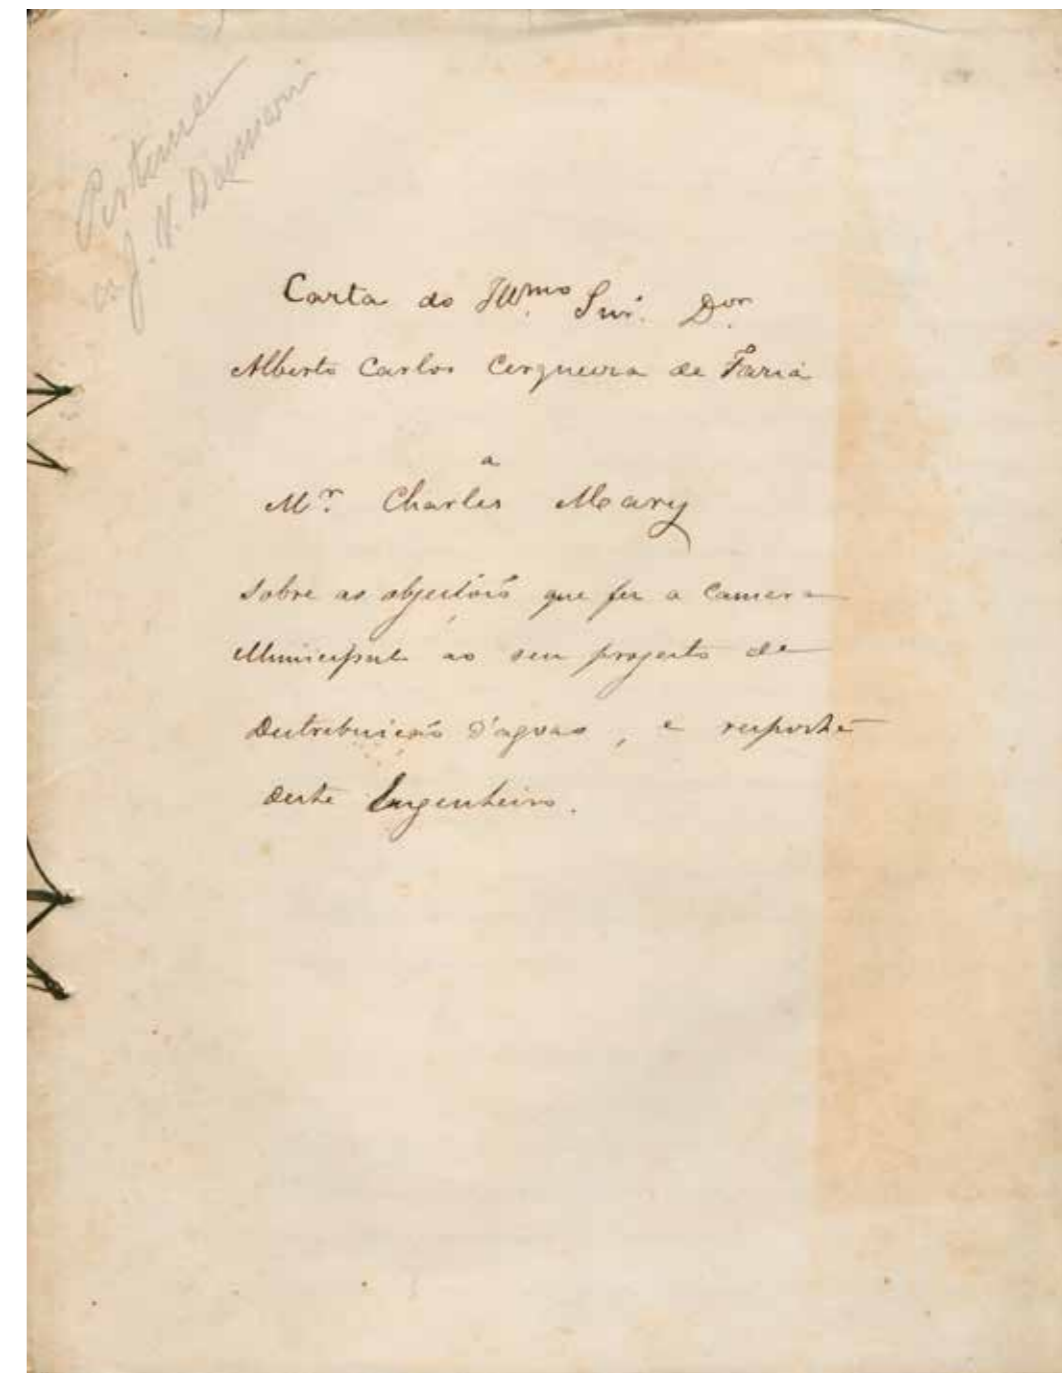 Pertence
a J. V. Damasio
Carta do Illmo Snr. Dor
Alberto Carlos Cerqueira de Faria
a
Mr. Charles Meary
sobre as objecções que fez a Camera
Municipal ao seu projecto de
Destribuição d'agoas, e resposta
deste Engenheiro.